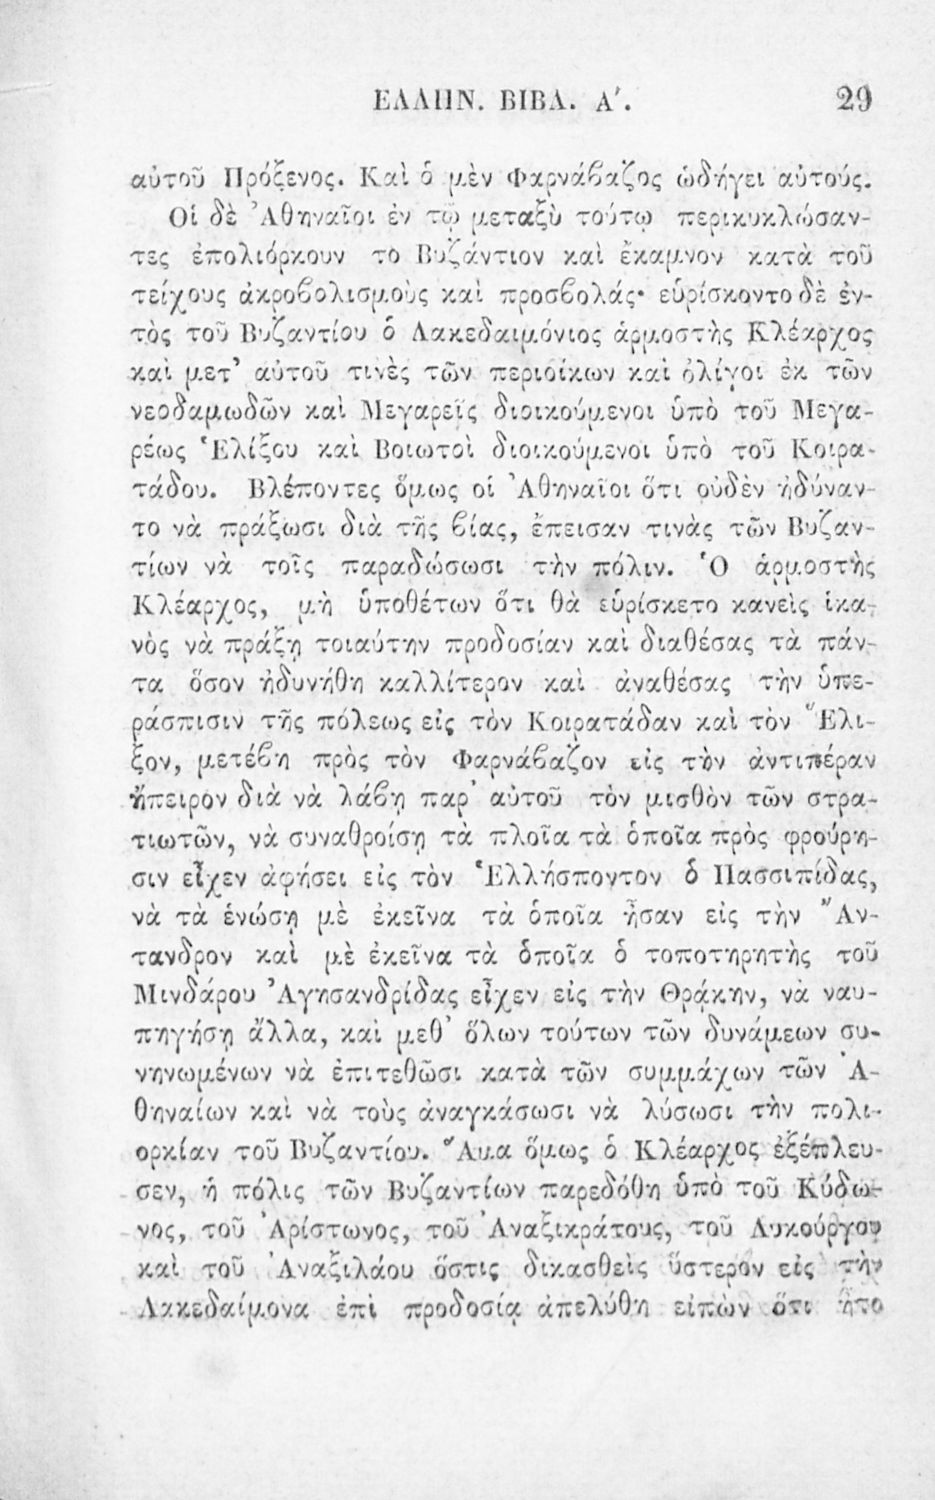 ΕΛΛΗΝ. ΒΙΒΛ. Α΄. 29
αὐτοῦ Πρόξενος. Καὶ ὁ μὲν Φαρνάβαζος ὡδήγει αὐτούς.
Οἱ δὲ Ἀθηναῖοι ἐν τῷ μεταξὺ τούτῳ περικυκλώσαν-
τες ἐπολιόρκουν το Βυζάντιον καὶ ἔκαμνον κατὰ τοῦ
τείχους ἀκροβολισμοὺς καὶ προσβολάς· εὑρίσκοντο δὲ ἐν-
τὸς τοῦ Βυζαντίου ὁ Λακεδαιμόνιος ἁρμοστὴς Κλέαρχος
καὶ μετ’ αὐτοῦ τινὲς τῶν περιοίκων καὶ ὀλίγοι ἐκ τῶν
νεοδαμωδῶν καὶ Μεγαρεῖς διοικούμενοι ὑπὸ τοῦ Μεγα-
ρέως Ἑλίξου καὶ Βοιωτοὶ διοικούμενοι ὑπὸ τοῦ Κοιρα-
τάδου. Βλέποντες ὅμως οἱ Ἀθηναῖοι ὅτι οὐδὲν ἠδύναν-
το νὰ πράξωσι διὰ τῆς βίας, ἔπεισαν τινὰς τῶν Βυζαν-
τίων νὰ τοῖς παραδώσωσι τὴν πόλιν. Ὁ ἁρμοστὴς
Κλέαρχος, μὴ ὑποθέτων ὅτι θὰ εὑρίσκετο κανεὶς ἱκα-
νὸς νὰ πράξῃ τοιαύτην προδοσίαν καὶ διαθέσας τὰ πάν-
τα ὅσον ἠδυνήθη καλλίτερον καὶ ἀναθέσας τὴν ὑπε-
ράσπισιν τῆς πόλεως εἰς τὸν Κοιρατάδαν καὶ τὸν Ἕλι-
ξον, μετέβη πρὸς τὸν Φαρνάβαζον εἰς τὴν ἀντιπέραν
ἤπειρον διὰ νὰ λάβῃ παρ’ αὐτοῦ τὸν μισθὸν τῶν στρα-
τιωτῶν, νὰ συναθροίσῃ τὰ πλοῖα τὰ ὁποῖα πρὸς φρούρη-
σιν εἶχεν ἀφήσει εἰς τὸν Ἑλλήσποντον ὁ Πασσιπίδας,
νὰ τὰ ἑνώσῃ μὲ ἐκεῖνα τὰ ὁποῖα ἦσαν εἰς τὴν Ἄν-
τανδρον καὶ μὲ ἐκεῖνα τὰ ὁποῖα ὁ τοποτηρητὴς τοῦ
Μινδάρου Ἀγησανδρίδας εἶχεν εἰς τὴν Θράκην, νὰ ναυ-
πηγήσῃ ἄλλα, καὶ μεθ’ ὅλων τούτων τῶν δυνάμεων συ-
νηνωμένων νὰ ἐπιτεθῶσι κατὰ τῶν συμμάχων τῶν Ἀ-
θηναίων καὶ νὰ τοὺς ἀναγκάσωσι νὰ λύσωσι τὴν πολι-
ορκίαν τοῦ Βυζαντίου. Ἅμα ὅμως ὁ Κλέαρχος ἐξέπλευ-
σεν, ἡ πόλις τῶν Βυζαντίων παρεδόθη ὑπὸ τοῦ Κύδω-
νος, τοῦ Ἀρίστωνος, τοῦ Ἀναξικράτους, τοῦ Λυκούργου
καὶ τοῦ Ἀναξιλάου ὅστις δικασθεὶς ὕστερον εἰς τὴν
Λακεδαίμονα ἐπὶ προδοσίᾳ ἀπελύθη εἰπὼν ὅτι ἦτο